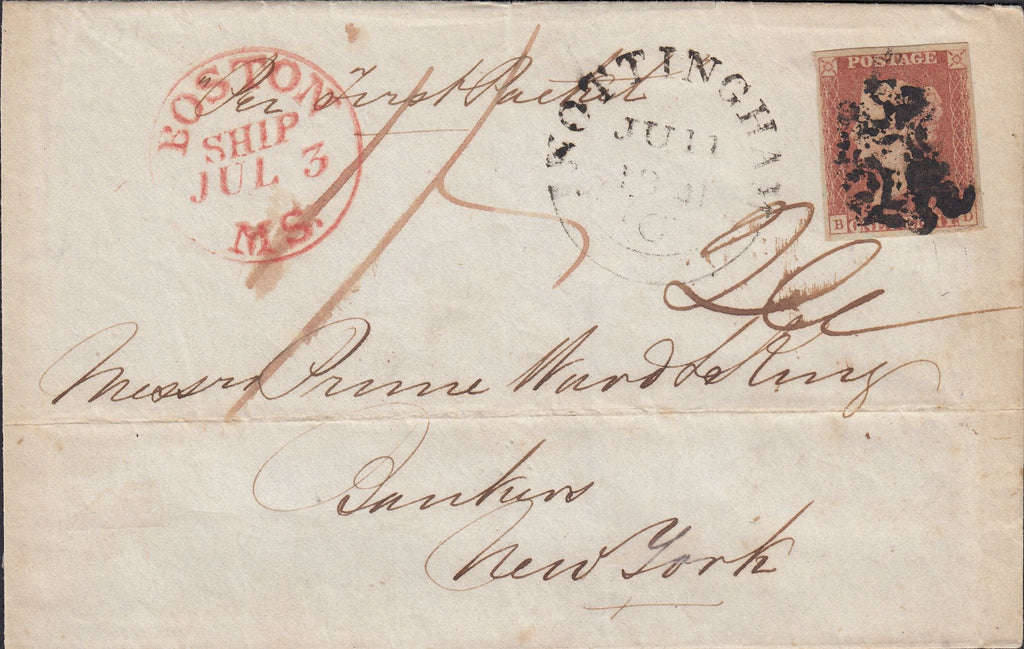 BOSTON
SHIP
JUL 3
MS.
Per First Packet
NOTTINGHAM
JU 11
POSTAGE
B D
Messrs Prime Ward & King
Bankers
New York